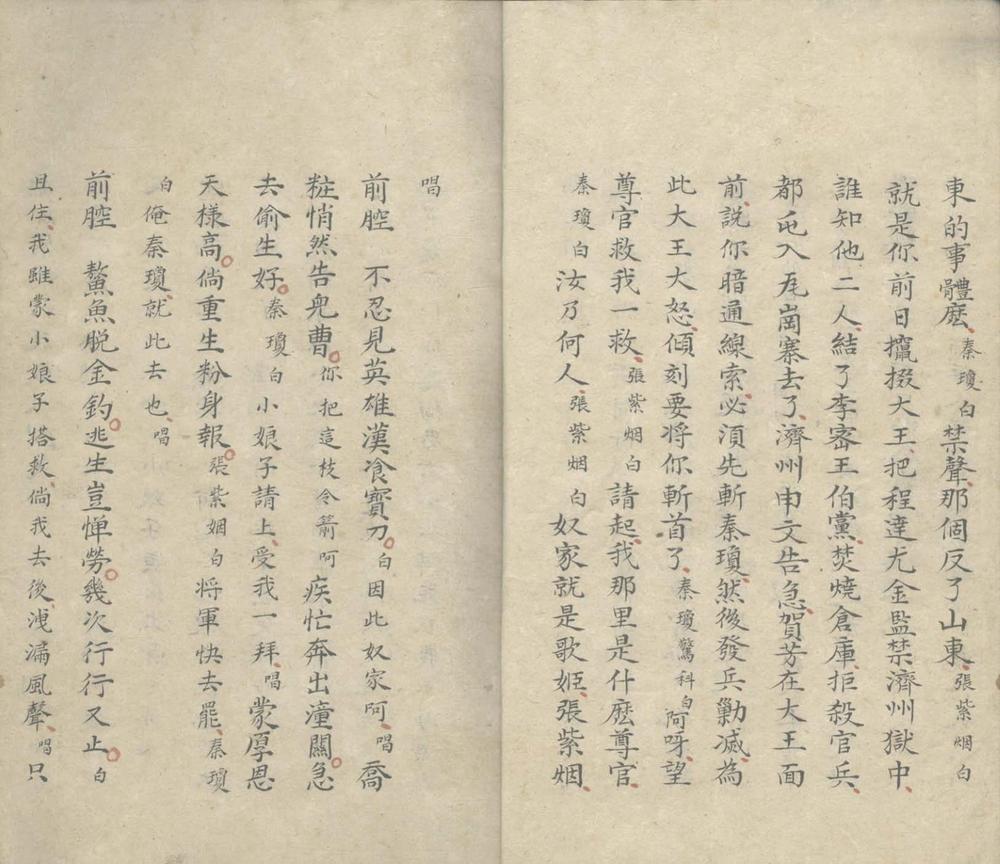 東的事體麽秦瓊白禁聲那個反了山東張紫烟白
就是你前日攛掇大王把程達尤金監禁濟州獄中
誰知他二人結了李宻王伯黨焚燒倉庫拒殺官兵
都屯入瓦崗寨去了濟州申文告急賀芳在大王面
前說你暗通線索必須先斬秦瓊然後發兵勦滅為
此大王大怒傾刻要將你斬首了秦瓊驚科白阿呀望
尊官救我一救張紫烟白請起我那里是什麽尊官
秦瓊白汝乃何人張紫烟白奴家就是歌姬張紫姻
唱
前腔 不忍見英雄漢飡寳刀白因此奴家呵唱喬
粧悄然告兕曹你把這枝令箭呵疾忙奔出潼關急
去偷生好秦瓊白小娘子請上受我一拜唱蒙厚恩
天樣高倘重生粉身報張紫姻白将軍快去罷秦瓊
白俺秦瓊就此去也唱
前腔 鰲魚脱金釣逃生豈惮勞幾次行行又止白
且住我雖蒙小娘子搭救倘我去後洩漏風聲唱只